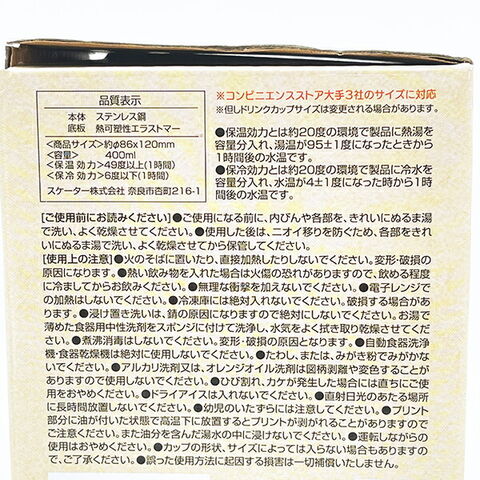 品質表示
本体 ステンレス鋼
底板 熱可塑性エラストマー
<商品サイズ>約φ86×120mm
<容量> 400ml
<保温効力>49度以上(1時間)
<保冷効力>6度以下(1時間)
スケーター株式会社 奈良市杏町216-1
※コンビニエンスストア大手3社のサイズに対応
※但しドリンクカップサイズは変更される場合があります。
●保温効力とは約20度の環境で製品に熱湯を
容量分入れ、湯温が95±1度になったときから
1時間後の水温です。
●保冷効力とは約20度の環境で製品に冷水を
容量分入れ、水温が4±1度になった時から1時
間後の水温です。
[ご使用前にお読みください]●ご使用になる前に、内びんや各部を、きれいにぬるま湯
で洗い、よく乾燥させてください。●使用した後は、ニオイ移りを防ぐため、各部をきれ
いにぬるま湯で洗い、よく乾燥させてから保管してください。
[使用上の注意]●火のそばに置いたり、直接加熱したりしないでください。変形・破損の
原因になります。●熱い飲み物を入れた場合は火傷の恐れがありますので、飲める程度
に冷ましてからお飲みください。●無理な衝撃を加えないでください。●電子レンジで
の加熱はしないでください。●冷凍庫には絶対入れないでください。破損する場合があ
ります。●浸け置き洗いは、錆の原因になりますので絶対にしないでください。お湯で
薄めた食器用中性洗剤をスポンジに付けて洗浄し、水気をよく拭き取り乾燥させてくだ
さい。●煮沸消毒はしないでください。変形・破損の原因となります。●自動食器洗浄
機・食器乾燥機は絶対に使用しないでください。●たわし、または、みがき粉でみがかな
いでください。●アルカリ洗剤又は、オレンジオイル洗剤は図柄剥離や変色することが
ありますので使用しないでください。●ひび割れ、カケが発生した場合には直ちにご使
用をおやめください。●ドライアイスは入れないでください。●直射日光のあたる場所
に長時間放置しないでください。●幼児のいたずらには注意してください。●プリント
部分に油が付いた状態で高温下に放置するとプリントが剥がれることがありますので注
意してください。また油分を含んだ湯水の中に浸けないでください。●運転しながらの
使用はおやめください。●カップの形状、サイズによっては入らない場合がありますの
でご了承ください。●誤った使用方法に起因する損害は一切補償いたしません。